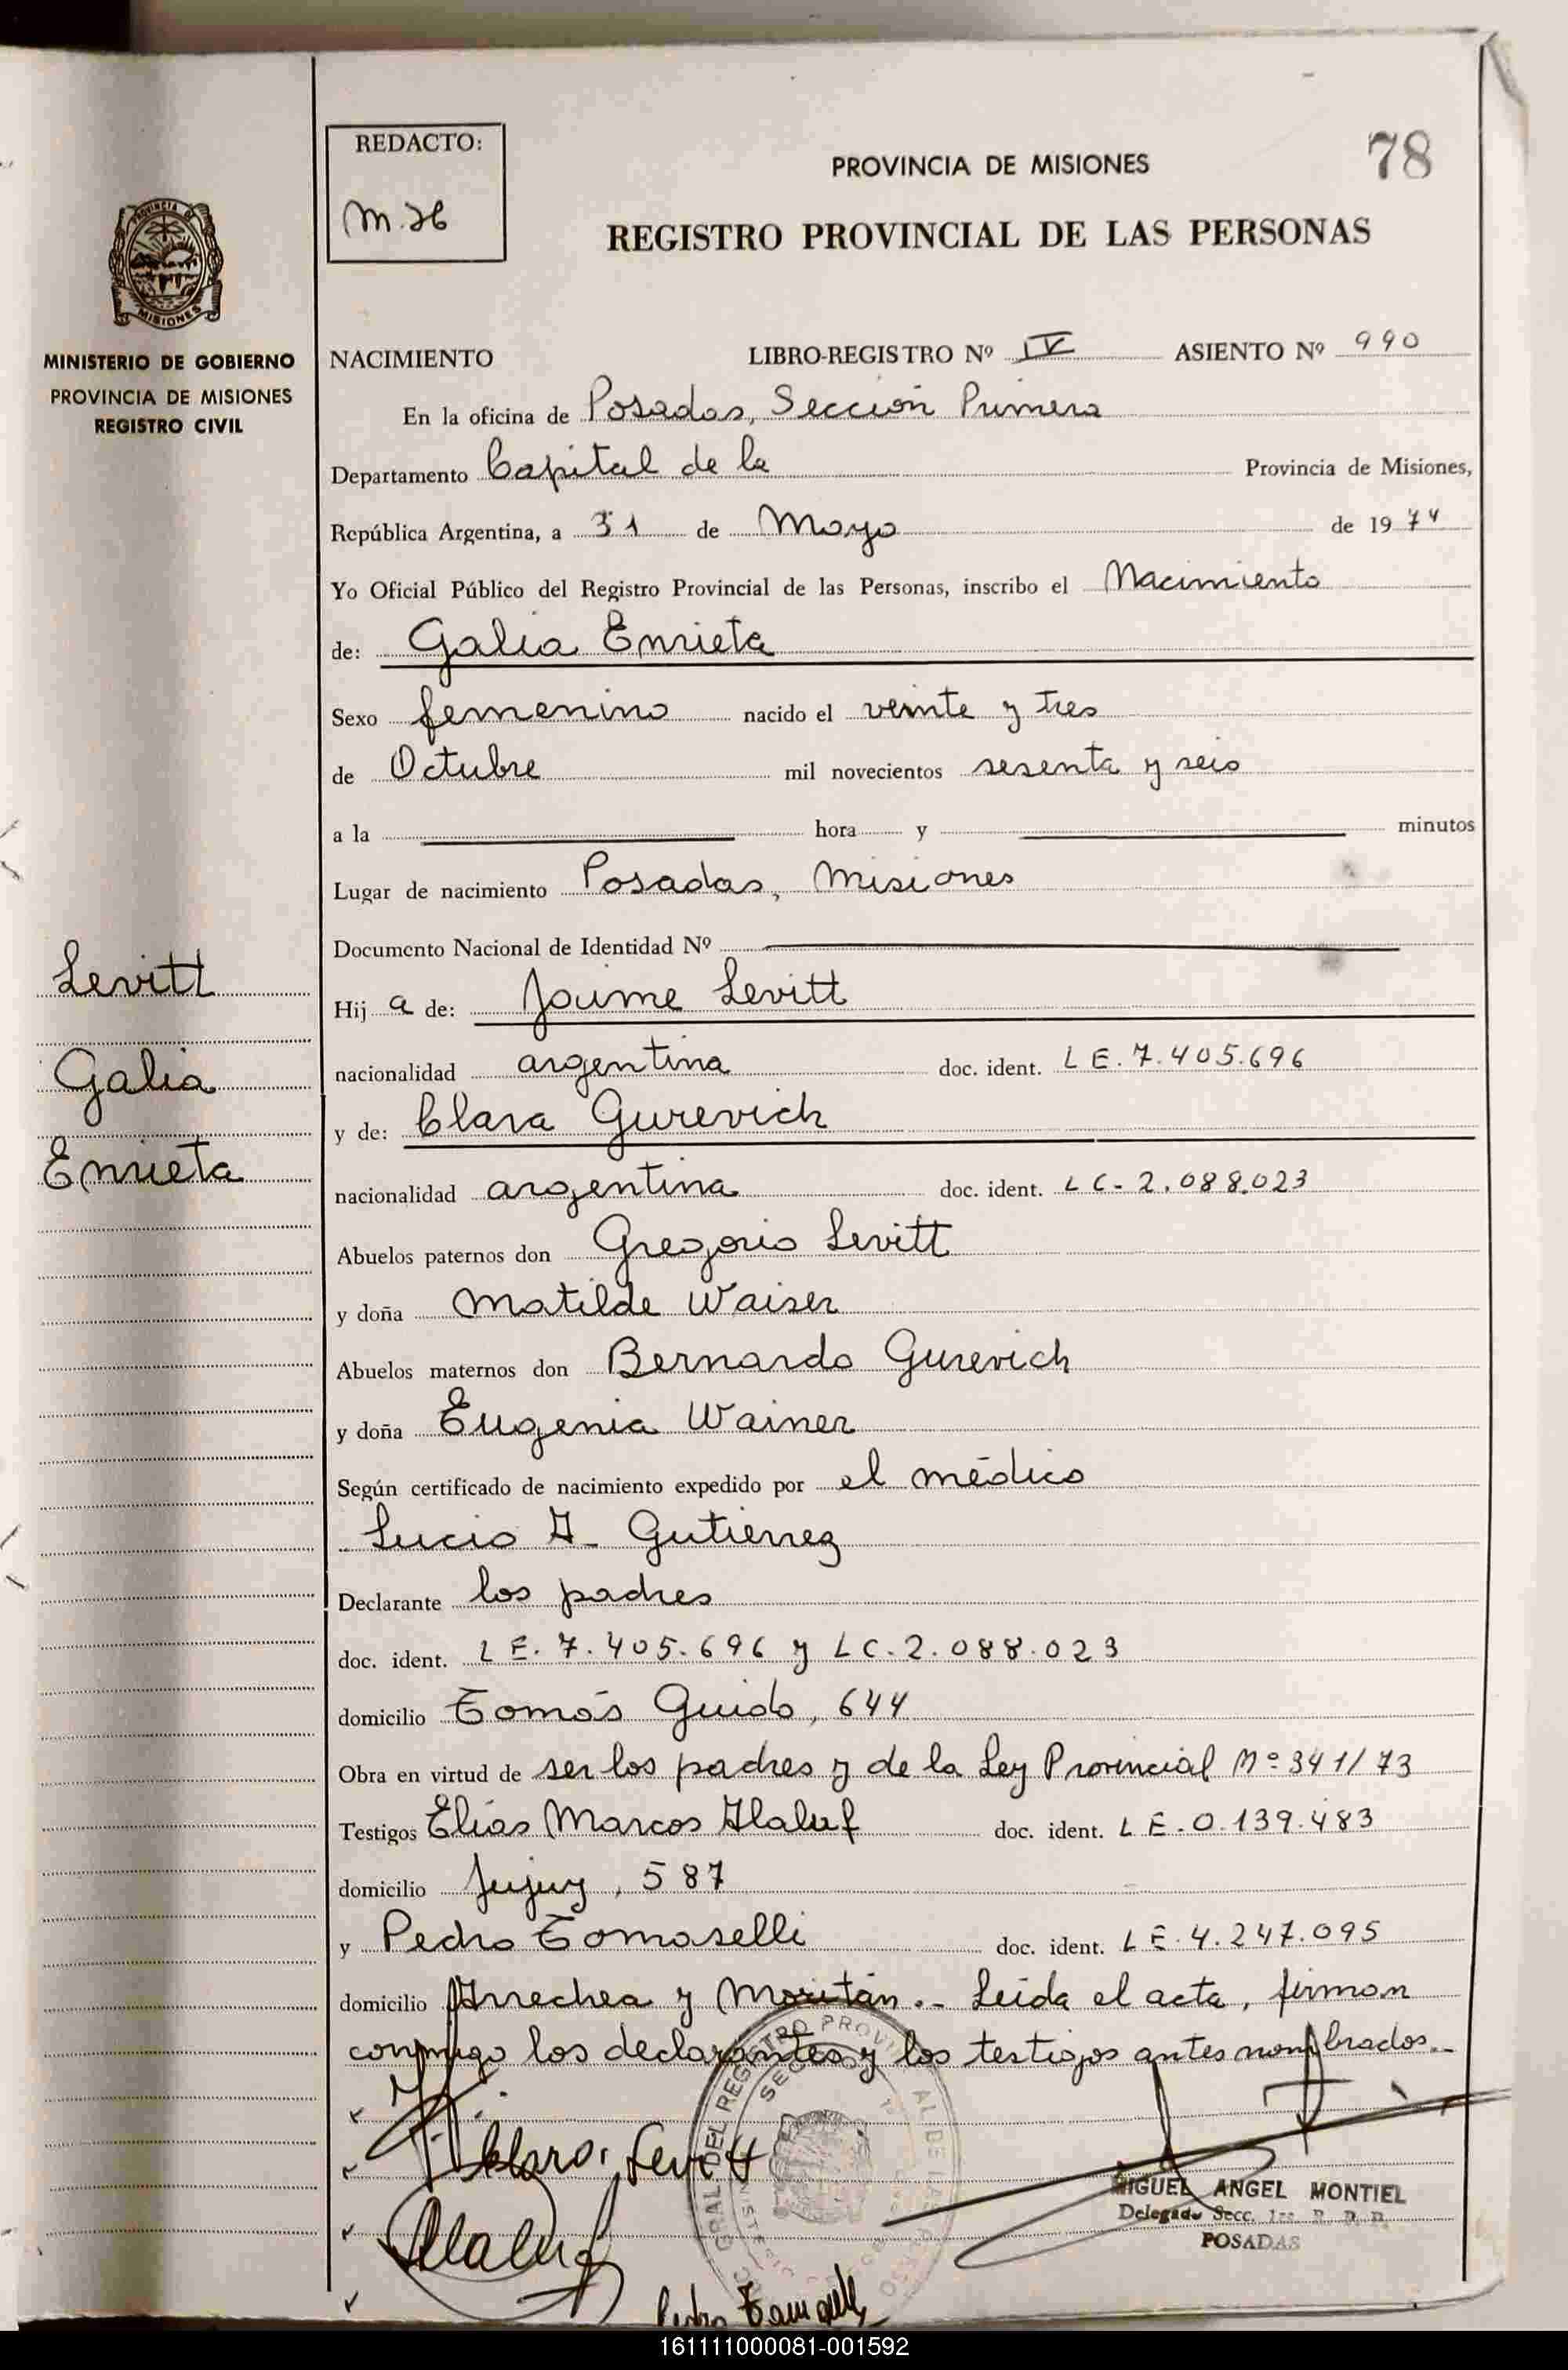 REDACTO:
M.26
PROVINCIA DE MISIONES
78
REGISTRO PROVINCIAL DE LAS PERSONAS
PROVINCIA DE
MISIONES
MINISTERIO DE GOBIERNO
PROVINCIA DE MISIONES
REGISTRO CIVIL
NACIMIENTO LIBRO-REGISTRO Nº IV ASIENTO Nº 990
En la oficina de Posadas, Sección Primera
Departamento Capital de la Provincia de Misiones,
República Argentina, a 31 de Mayo de 1974
Yo Oficial Público del Registro Provincial de las Personas, inscribo el Nacimiento
de: Galia Enrieta
Sexo femenino nacido el veinte y tres
de Octubre mil novecientos sesenta y seis
a la hora y minutos
Lugar de nacimiento Posadas, Misiones
Documento Nacional de Identidad Nº
Levitt
Galia
Enrieta
Hij a de: Jaime Levitt
nacionalidad argentina doc. ident. LE. 7.405.696
y de: Clara Gurevich
nacionalidad argentina doc. ident. LC- 2.088.023
Abuelos paternos don Gregorio Levitt
y doña Matilde Waiser
Abuelos maternos don Bernardo Gurevich
y doña Eugenia Wainer
Según certificado de nacimiento expedido por el médico
Lucio A- Gutierrez
Declarante los padres
doc. ident. LE. 7.405.696 y LC.2.088.023
domicilio Tomás Guido, 644
Obra en virtud de ser los padres y de la Ley Provincial Nº 341/73
Testigos Elías Marcos Alaluf doc. ident. LE.0.139.483
domicilio Jujuy, 587
y Pedro Tomaselli doc. ident. LE.4.247.095
domicilio Arrechea y Moritán.- Leída el acta, firman
conmigo los declarantes y los testigos antes nombrados.-
Clara Levitt
Alaluf
MIGUEL ANGEL MONTIEL
Delegado Secc. 1ra R. P. P.
POSADAS
Pedro Tomaselli
161111000081-001592